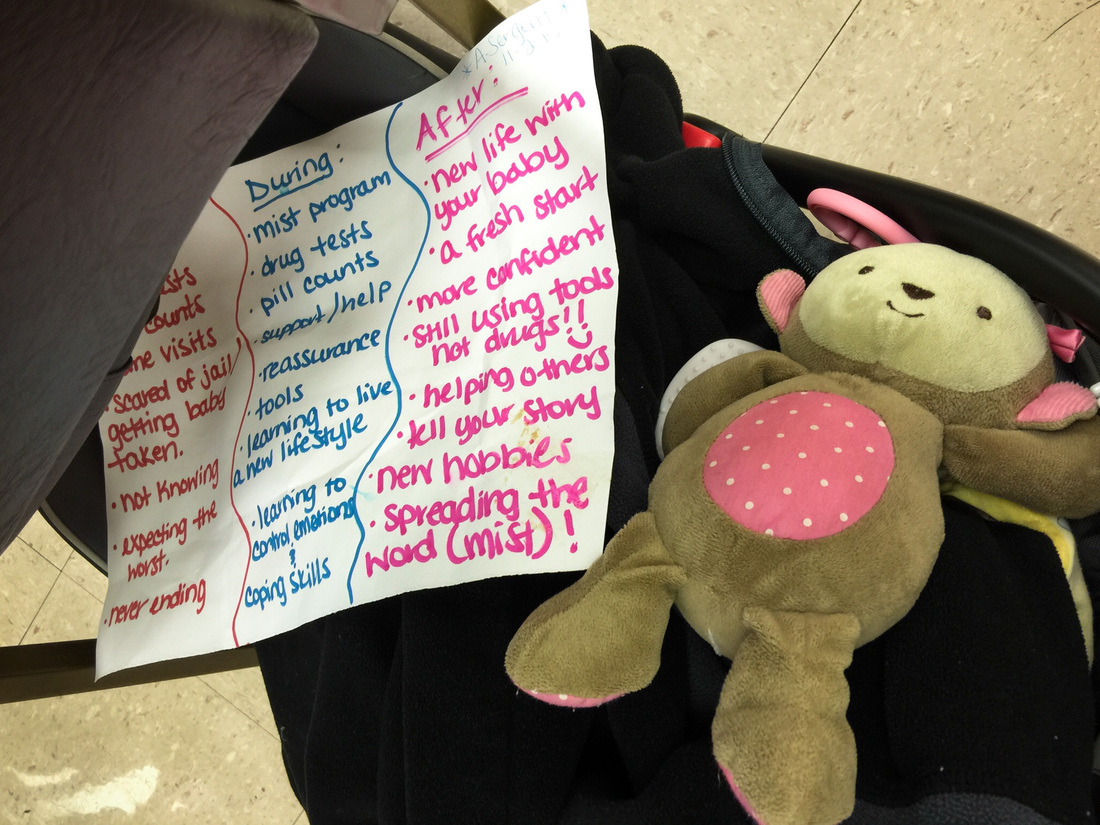 counts
visits
scared of jail/
getting baby
taken.
· not knowing
· expecting the
worst.
· never ending
During:
· mist program
· drug tests
· pill counts
· support/help
· reassurance
· tools
· learning to live
a new lifestyle
· learning to
control emotions
&
coping skills
After:
· new life with
your baby
· a fresh start
· more confident
· still using tools
not drugs!!
· helping others
· tell your story
· new hobbies
· spreading the
word (mist)!